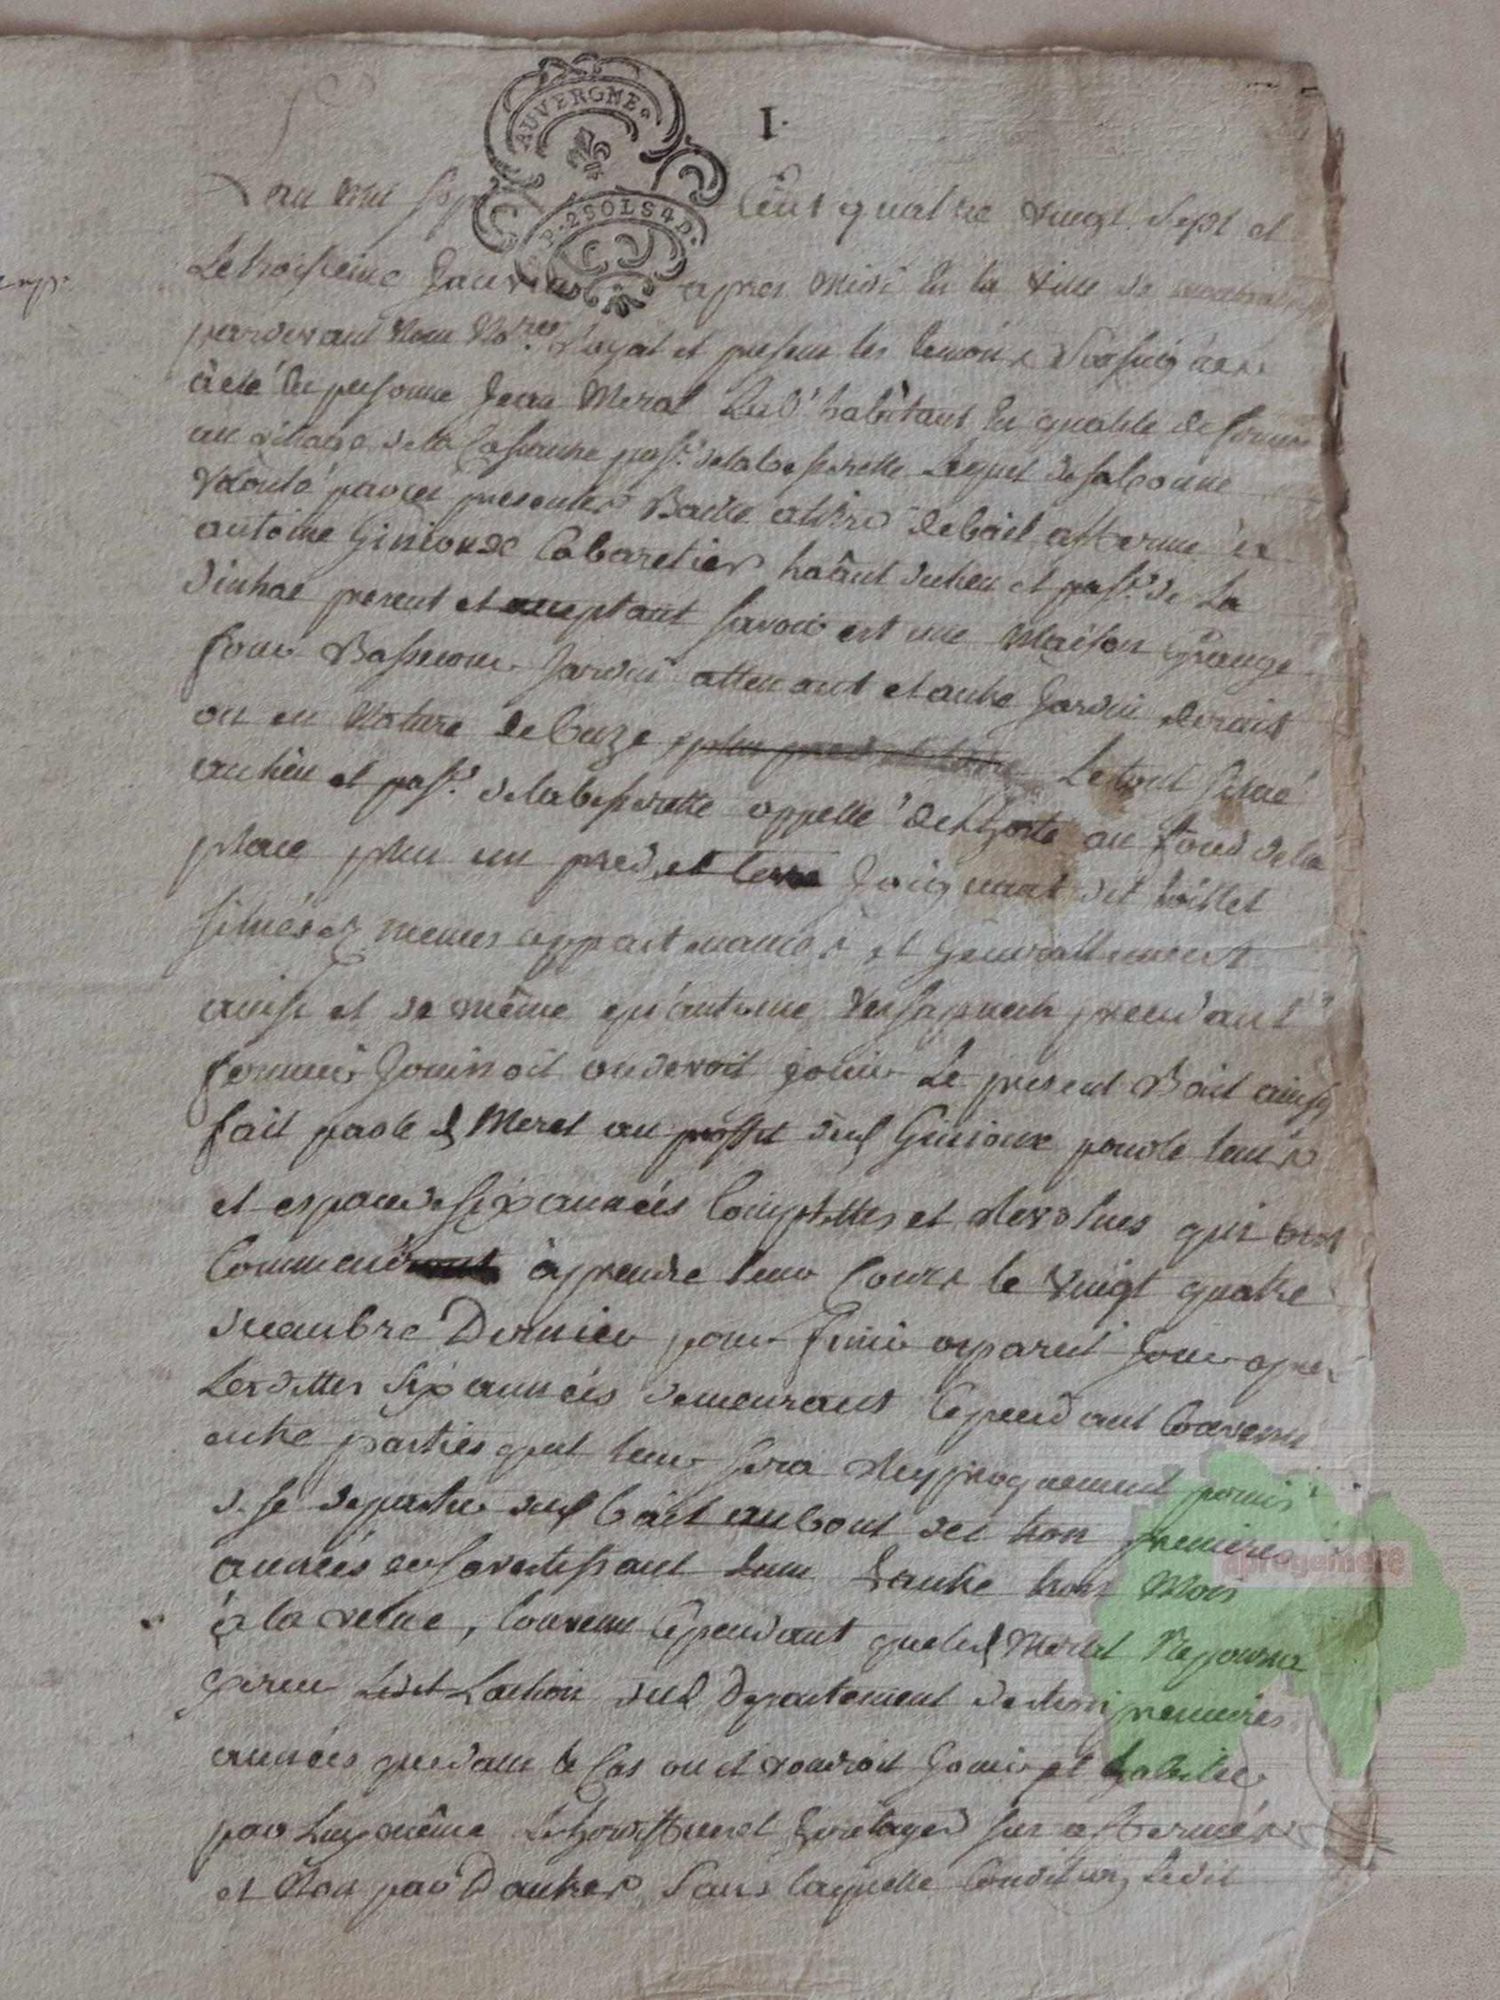 AUVERGNE
I.
P. 2 SOLS 4 D.
L'an mil sept Cent quatre vingt sept et
Le troisieme Janvier apres midi En la ville de
pardevant Nous No.res Royal et presens les temoins Soussignés
à eté En personne Jean Meral habitant En qualité de
au village de la pass.e de labesserette Lequel de sa bonne
volonté par ces presentes Baille a titre de bail afferme à
antoine Ginioux Cabaretier haânt du lieu et pass.e de La
vinhac present et acceptant savoir est une Maison Grange
four Bassecour Jardin attenant et autre Jardin devant
ou en Nature de buze Le tout situé
au lieu et pass.e de labesserette appellé au fond de la
place plus un pred et terre Joignant
situés ez memes appartenances et Generallement
ainsi et de même qu'antoine precedant
fermier Jouissoit ou devoit jouir Le present Bail ainsy
fait par le d Meral au proffit dud Ginioux pour le tems
et espace de six années Complettes et Revolues qui ont
Commencé à prendre leur Cours le vingt quatre
decembre Dernier pour finir a pareil Jour apres
Lesdittes six années demeurant Cependant Convenu
entre parties quil leur sera Reciproquement permis
de se departir dud bail au bout des trois premieres
années en s'avertissant L'un L'autre trois Mois
à la veluë, Convenu Cependant que led Meral Ne pourra
Departement des trois premieres
années que dans le Cas ou il voudroit Jouir et habiter
par Luy même heritages sus affermés
et Non par D'autres, sans laquelle Condition Ledit
aprogemere